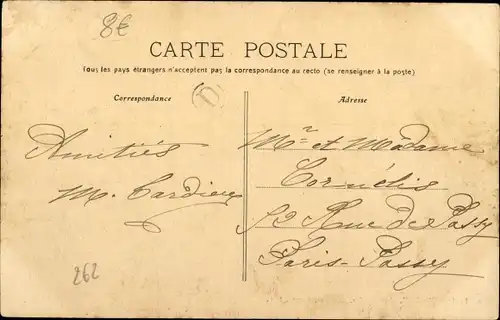 8€
CARTE POSTALE
Tous les pays étrangers n'acceptent pas la correspondance au recto (se renseigner à la poste)
Correspondance
D
Adresse
Amitiés
M. Tardieu
Mr et Madame
Cornélis
52 Rue de Passy
Paris-Passy
262